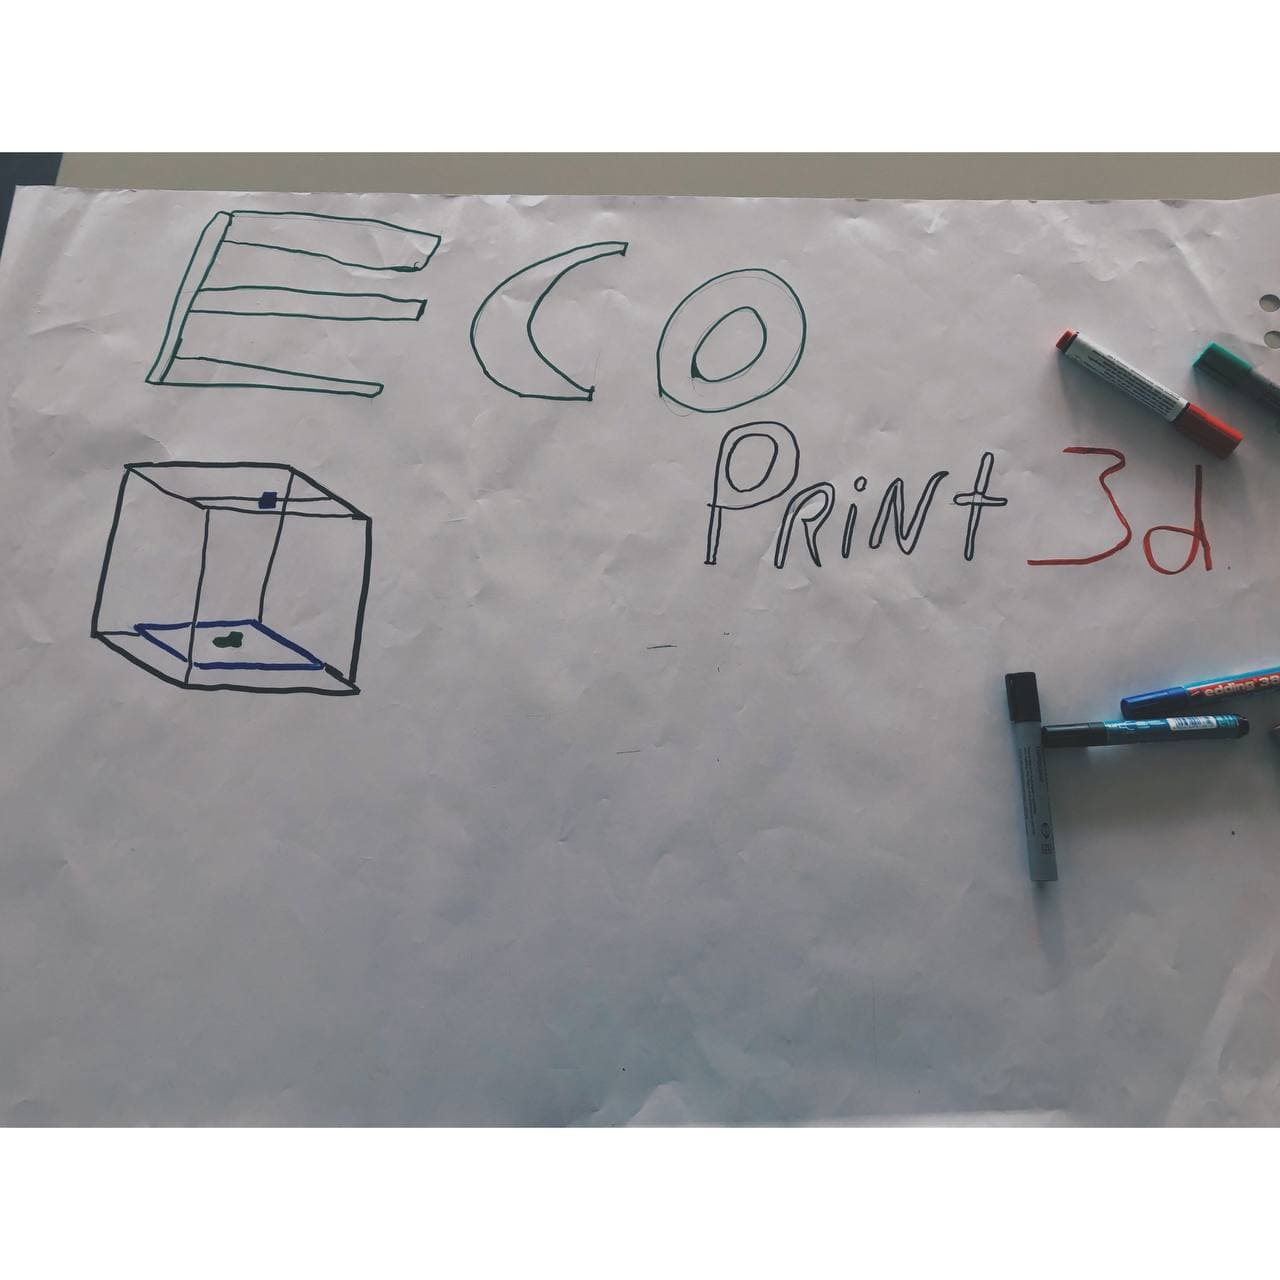 ECO
PRiNt 3d
edding 38